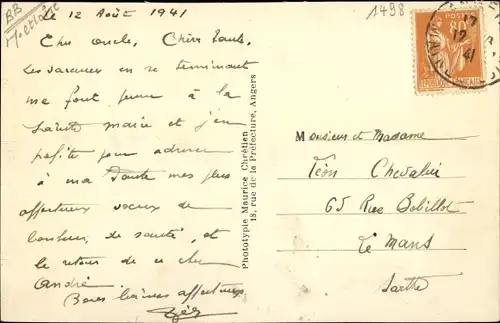 Le 12 Août 1941
Cher oncle, Chère Tante,
Les vacances en se terminant
me font penser à la
Sainte Marie et j'en
profite pour adresser
à ma Tante mes plus
affectueux voeux de
bonheur, de santé, et
le retour de ce cher
André.
Bons baisers affectueux
1498
POSTES
80
17
12
41
Phototypie Maurice Chrétien
18, rue de la Préfecture, Angers
Monsieur et Madame
Léon Chevalier
65 Rue Bobillot
Le Mans
Sarthe